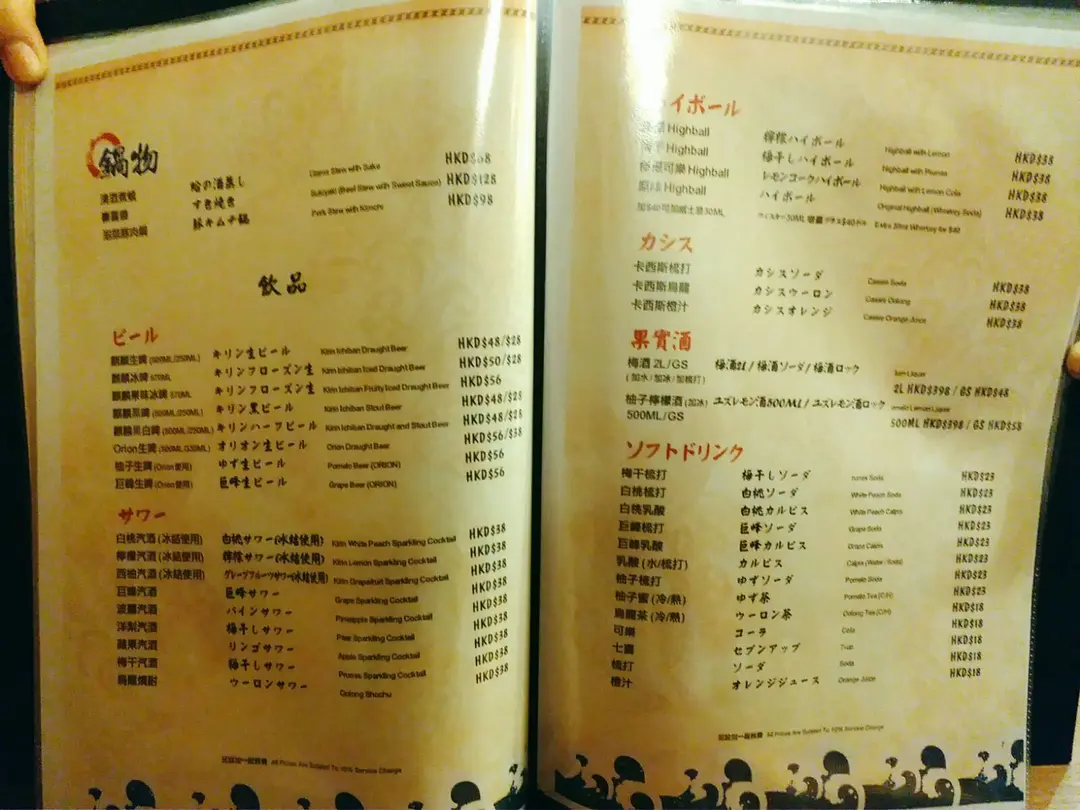 鍋物
清酒煮蜆 蛤の酒蒸し Clams Stew with Sake
壽喜燒 すき焼き Sukiyaki (Beef Stew with Sweet Sauce) HKD$128
泡菜豚肉鍋 豚キムチ鍋 Pork Stew with Kimchi HKD$98
飲品
ビール
麒麟生啤 (500ML/250ML) キリン生ビール Kirin Ichiban Draught Beer HKD$48/$28
麒麟冰啤 570ML キリンフローズン生 Kirin Ichiban Iced Draught Beer HKD$50/$28
麒麟果味冰啤 570ML キリンフローズン生 Kirin Ichiban Fruity Iced Draught Beer HKD$56
麒麟黑啤 (500ML/250ML) キリン黒ビール Kirin Ichiban Stout Beer HKD$48/$28
麒麟黑白啤 (500ML/250ML) キリンハーフビール Kirin Ichiban Draught and Stout Beer HKD$48/$28
Orion生啤 オリオン生ビール Orion Draught Beer HKD$56/$38
柚子生啤 (Orion使用) ゆず生ビール Pomelo Beer (ORION) HKD$56
巨峰生啤 (Orion使用) 巨峰生ビール Grape Beer (ORION) HKD$56
サワー
白桃汽酒 (冰結使用) 白桃サワー(氷結使用) Kirin White Peach Sparkling Cocktail HKD$38
檸檬汽酒 (冰結使用) 檸檬サワー(氷結使用) Kirin Lemon Sparkling Cocktail HKD$38
西柚汽酒 (冰結使用) グレープフルーツサワー(氷結使用) Kirin Grapefruit Sparkling Cocktail HKD$38
巨峰汽酒 巨峰サワー Grape Sparkling Cocktail HKD$38
菠蘿汽酒 パインサワー Pineapple Sparkling Cocktail HKD$38
洋梨汽酒 梅干しサワー Pear Sparkling Cocktail HKD$38
蘋果汽酒 リンゴサワー Apple Sparkling Cocktail HKD$38
梅干汽酒 梅干しサワー Prunes Sparkling Cocktail HKD$38
烏龍燒酎 ウーロンサワー Oolong Shochu HKD$38
另設加一服務費 All Prices Are Subject To 10% Service Charge
イボール
Highball 檸檬ハイボール Highball with Lemon HKD$38
Highball 梅干しハイボール Highball with Prunes HKD$38
檸檬可樂 Highball レモンコークハイボール Highball with Lemon Cola HKD$38
原味 Highball ハイボール Original Highball (Whiskey Soda) HKD$38
加$40可加威士忌30ML Extra 30ml Whiskey for $40
カシス
卡西斯梳打 カシスソーダ Cassis Soda HKD$38
卡西斯烏龍 カシスウーロン Cassis Oolong HKD$38
卡西斯橙汁 カシスオレンジ Cassis Orange Juice HKD$38
果實酒
梅酒 2L/GS 梅酒2L/梅酒ソーダ/梅酒ロック 2L HKD$398 / GS HKD$48
(加水/加冰/加梳打)
柚子檸檬酒 (加冰) ユズレモン酒500ML/ユズレモン酒ロック 500ML HKD$398 / GS HKD$58
500ML/GS
ソフトドリンク
梅干梳打 梅干しソーダ Soda HKD$23
白桃梳打 白桃ソーダ White Peach Soda HKD$23
白桃乳酸 白桃カルピス White Peach Calpis HKD$23
巨峰梳打 巨峰ソーダ Grape Soda HKD$23
巨峰乳酸 巨峰カルピス Grape Calpis HKD$23
乳酸 (水/梳打) カルピス Calpis (Water / Soda) HKD$23
柚子梳打 ゆずソーダ Pomelo Soda HKD$23
柚子蜜 (冷/熱) ゆず茶 Pomelo Tea (C/H) HKD$23
烏龍茶 (冷/熱) ウーロン茶 Oolong Tea (C/H) HKD$18
可樂 コーラ Cola HKD$18
七喜 セブンアップ 7-up HKD$18
梳打 ソーダ Soda HKD$18
橙汁 オレンジジュース Orange Juice HKD$18
另設加一服務費 All Prices Are Subject To 10% Service Charge